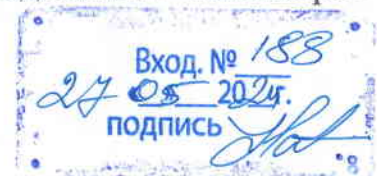 Вход. № 188
27 05 2024г.
подпись